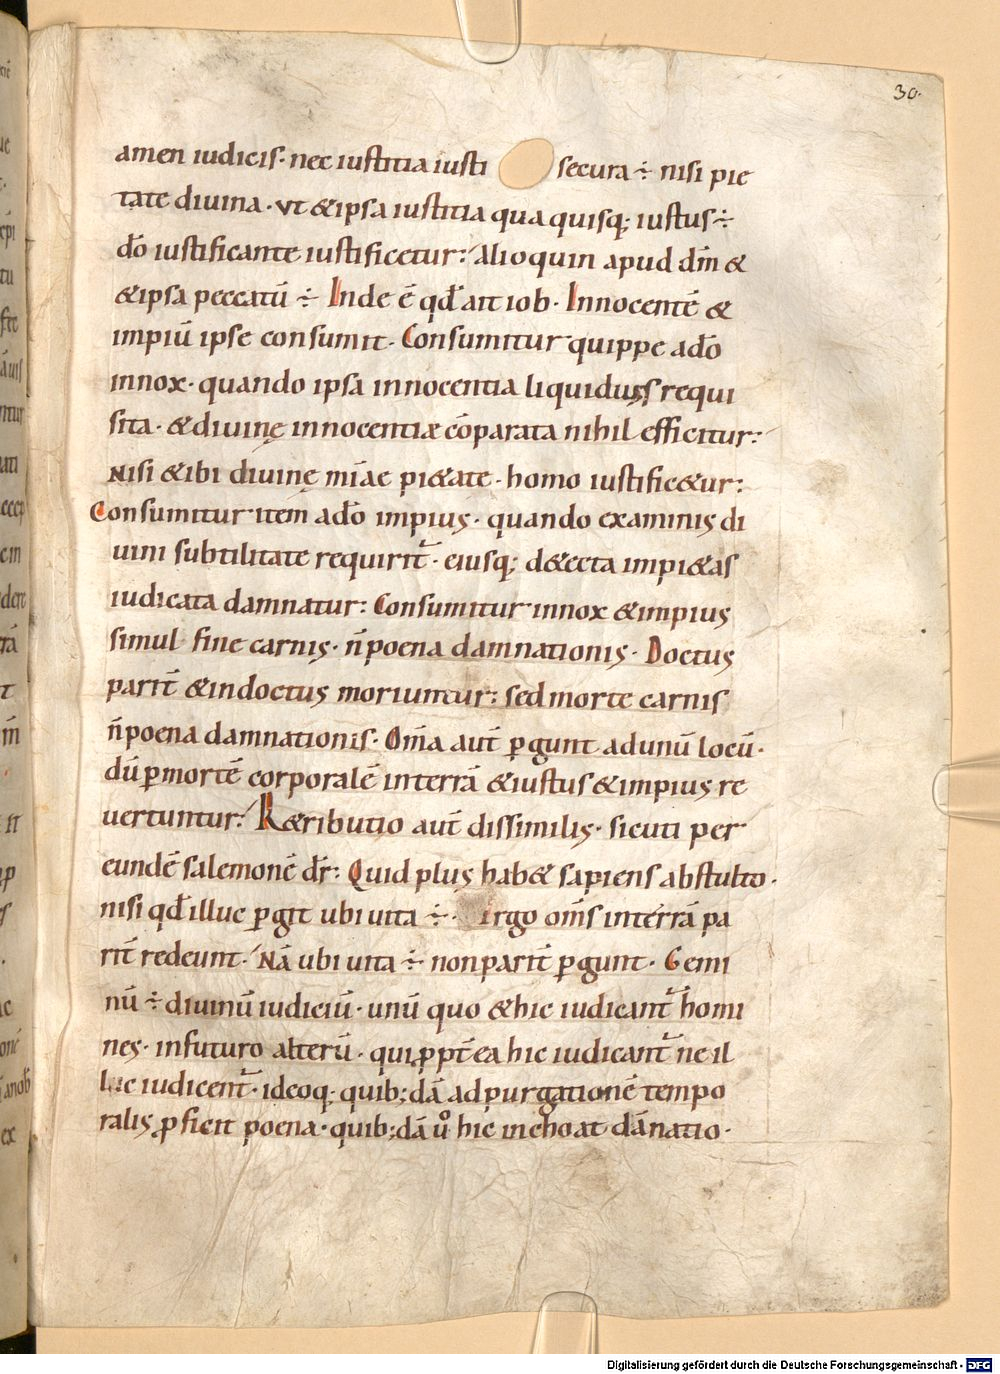 30.
amen iudicis· nec iustitia iusti secura ÷ nisi pie
tate diuina · vt &ipsa iustitia qua quisq; iustus ÷
dō iustificante iustificetur: Alioquin apud dm̄ &
&ipsa peccatū ÷ Inde ē qd̄ ait iob · Innocentē &
impiū ipse consumit · Consumitur quippe adō
innox · quando ipsa innocentia liquidus requi
sita · & diuinę innocentiæ cōparata nihil efficitur:
Nisi &ibi diuinę mīae pi&ate · homo iustific&ur:
Consumitur item adō impius · quando examinis di
uini subtilitate requirit᷑ · eiusq; d&ecta impi&as
iudicata damnatur: Consumitur innox &impius
simul fine carnis · n̄ poena damnationis · Doctus
parit̄ &indoctus moriuntur: sed morte carnis
n̄ poena damnationis · Om̄a aut̄ ꝑgunt adunū locū ·
dū ꝑmortē corporalē interrā &iustus &impius re
uertuntur: R&ributio aut̄ dissimilis · sicuti per
eundē salemonē dr̄: Quid plus hab& sapiens abstulto ·
nisi qd̄ illuc ꝑgit ubi uita ÷ · Ergo om̄s interrā pa
rit̄ redeunt · Nā ubi uita ÷ non parit̄ ꝑgunt · Gemi
nū ÷ diuinū iudiciū · unū quo &hic iudicant᷑ homi
nes · infuturo alterū · qui ꝓpt̄ ea hic iudicant᷑ ne il
luc iudicent᷑ · ideoq; quib; dā ad purgationē tempo
ralis ꝓficit poena · quib; dā uͦ hic inchoat dānatio ·
Digitalisierung gefördert durch die Deutsche Forschungsgemeinschaft - DFG